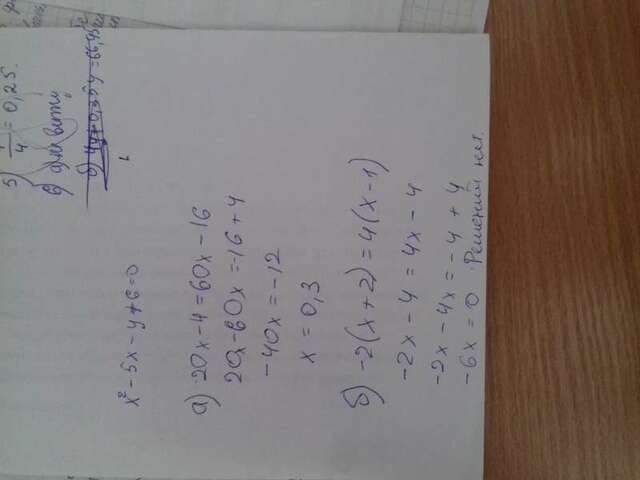 5) 1/4 = 0,25.
б)
x² - 5x - y + 6 = 0
а) 20x - 4 = 60x - 16
20x - 60x = -16 + 4
-40x = -12
x = 0,3
б) -2(x + 2) = 4(x - 1)
-2x - 4 = 4x - 4
-2x - 4x = -4 + 4
-6x = 0 Решений нет.